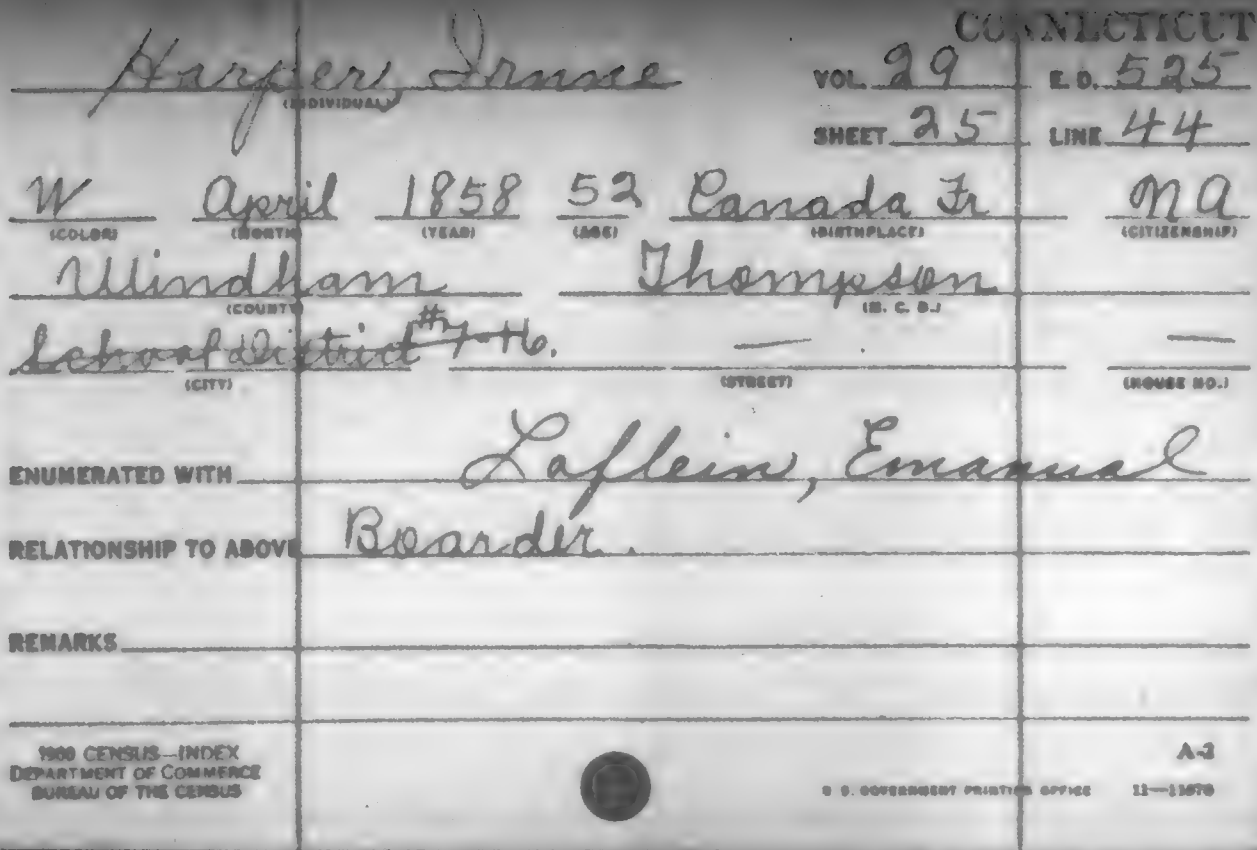 CONNECTICUT
Harper, Irnne VOL. 29 E. D. 525
(INDIVIDUAL)
SHEET 25 LINE 44
W April 1858 52 Canada Fr NA
(COLOR) (MONTH) (YEAR) (AGE) (BIRTHPLACE) (CITIZENSHIP)
Windham Thompson
(COUNTY) (M. C. D.)
School District #7+16. — —
(CITY) (STREET) (HOUSE NO.)
ENUMERATED WITH Laflein, Emanual
RELATIONSHIP TO ABOVE Boarder.
REMARKS
1900 CENSUS—INDEX A-2
DEPARTMENT OF COMMERCE
BUREAU OF THE CENSUS U. S. GOVERNMENT PRINTING OFFICE 11—11870